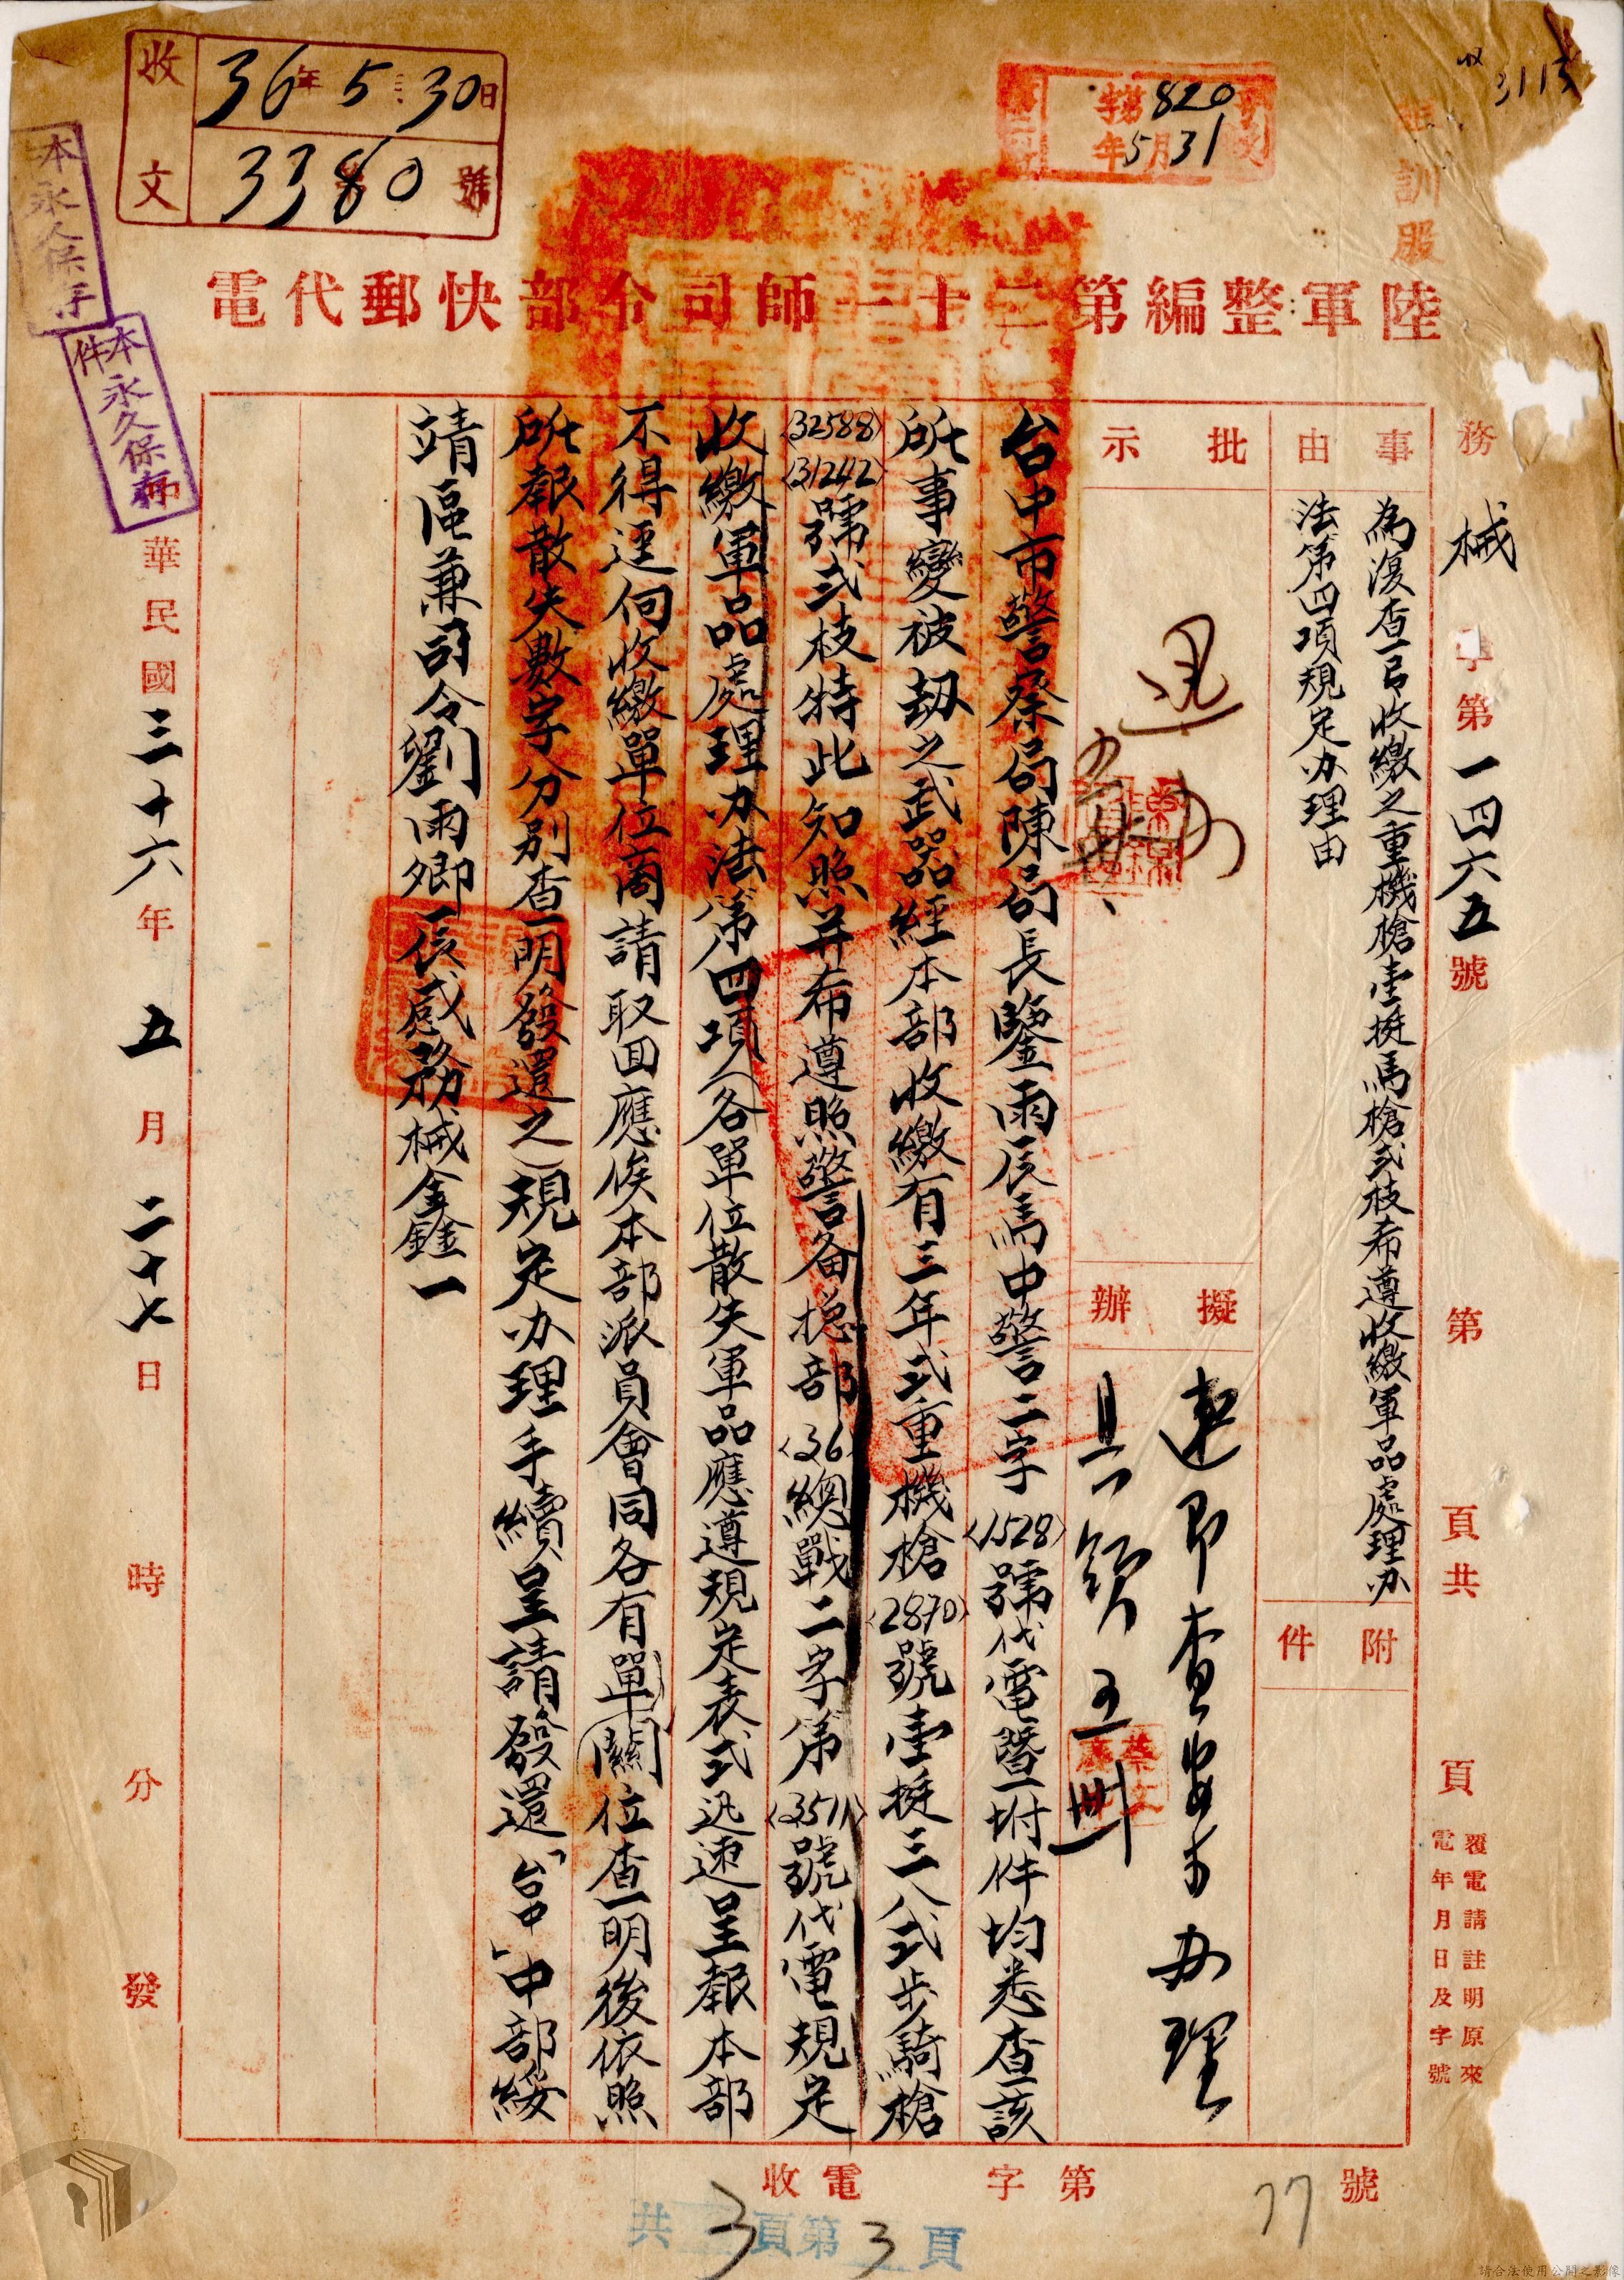 收文
36年5月30日
3380號
字第820號
年5月31
收3113
訓股
本永久保存
本件永久保存
陸軍整編第二十一師司令部快郵代電
務械字第一四六五號 第 頁共 頁
覆電請註明原來
電年月日及字號
事由
為復查一号收繳之重機槍壹挺馬槍貳枝希遵收繳軍品處理办
法第四項規定办理由
附件
批示
擬辦
速即查案办理
台中市警察局陳局長鑒雨辰馬中警二字(1528)號代電暨附件均悉查該
所事變被劫之武器經本部收繳有三年式重機槍(2870)號壹挺三八式步騎槍
(32588)(31242)號貳枝特此知照并希遵照警备总部(36)總戰二字第(3511)號代電規定
收繳軍品處理办法第四項(各單位散失軍品應遵規定表式迅速呈報本部
不得逕向收繳單位商請取回應俟本部派員會同各有單關位查明後依照
所報散失數字分別查明發還之)規定办理手續呈請發還「台中」中部綏
靖區兼司令劉雨卿辰感務械金鑫一
華民國三十六年五月二十七日 時 分發
收電 字第 號
77
共3頁第3頁
請合法使用公開之影像